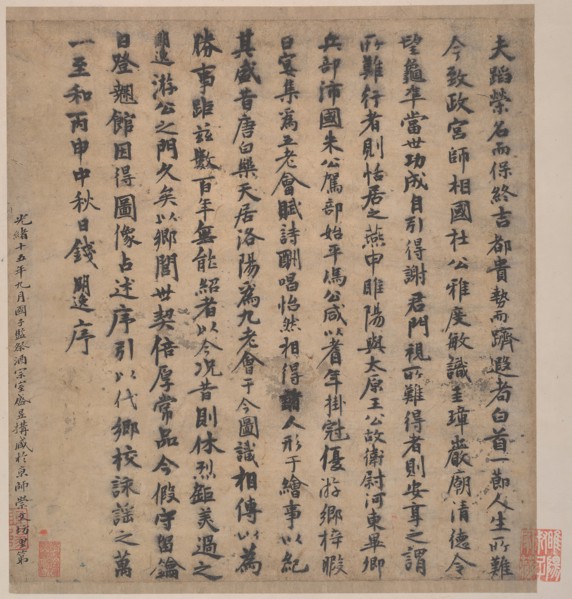 夫蹈榮名而保終吉都貴勢而躋遐耇白首一節人生所難
今致政宮師相國杜公雅度敏識圭璋巖廟清德令
望龜準當世功成自引得謝君門視所難得者則安享之謂
所難行者則恬居之燕申睢陽與太原王公故衛尉河東畢卿
兵部沛國朱公駕部始平馮公咸以耆年掛冠優游鄉梓暇
日宴集爲五老會賦詩酬唱怡然相得諸人形于繪事以紀
其盛昔唐白樂天居洛陽爲九老會于今圖識相傳以為
勝事距茲數百年無能紹者以今況昔則休烈鉅美過之
明逸游公之門久矣以鄉閭世契倍厚常品今假守留鑰
日登翹館因得圖像占述序引以代鄉校詠謠之萬
一至和丙申中秋日錢明逸序
光緒十五年九月國子監祭酒宗室盛昱講威於京師崇文